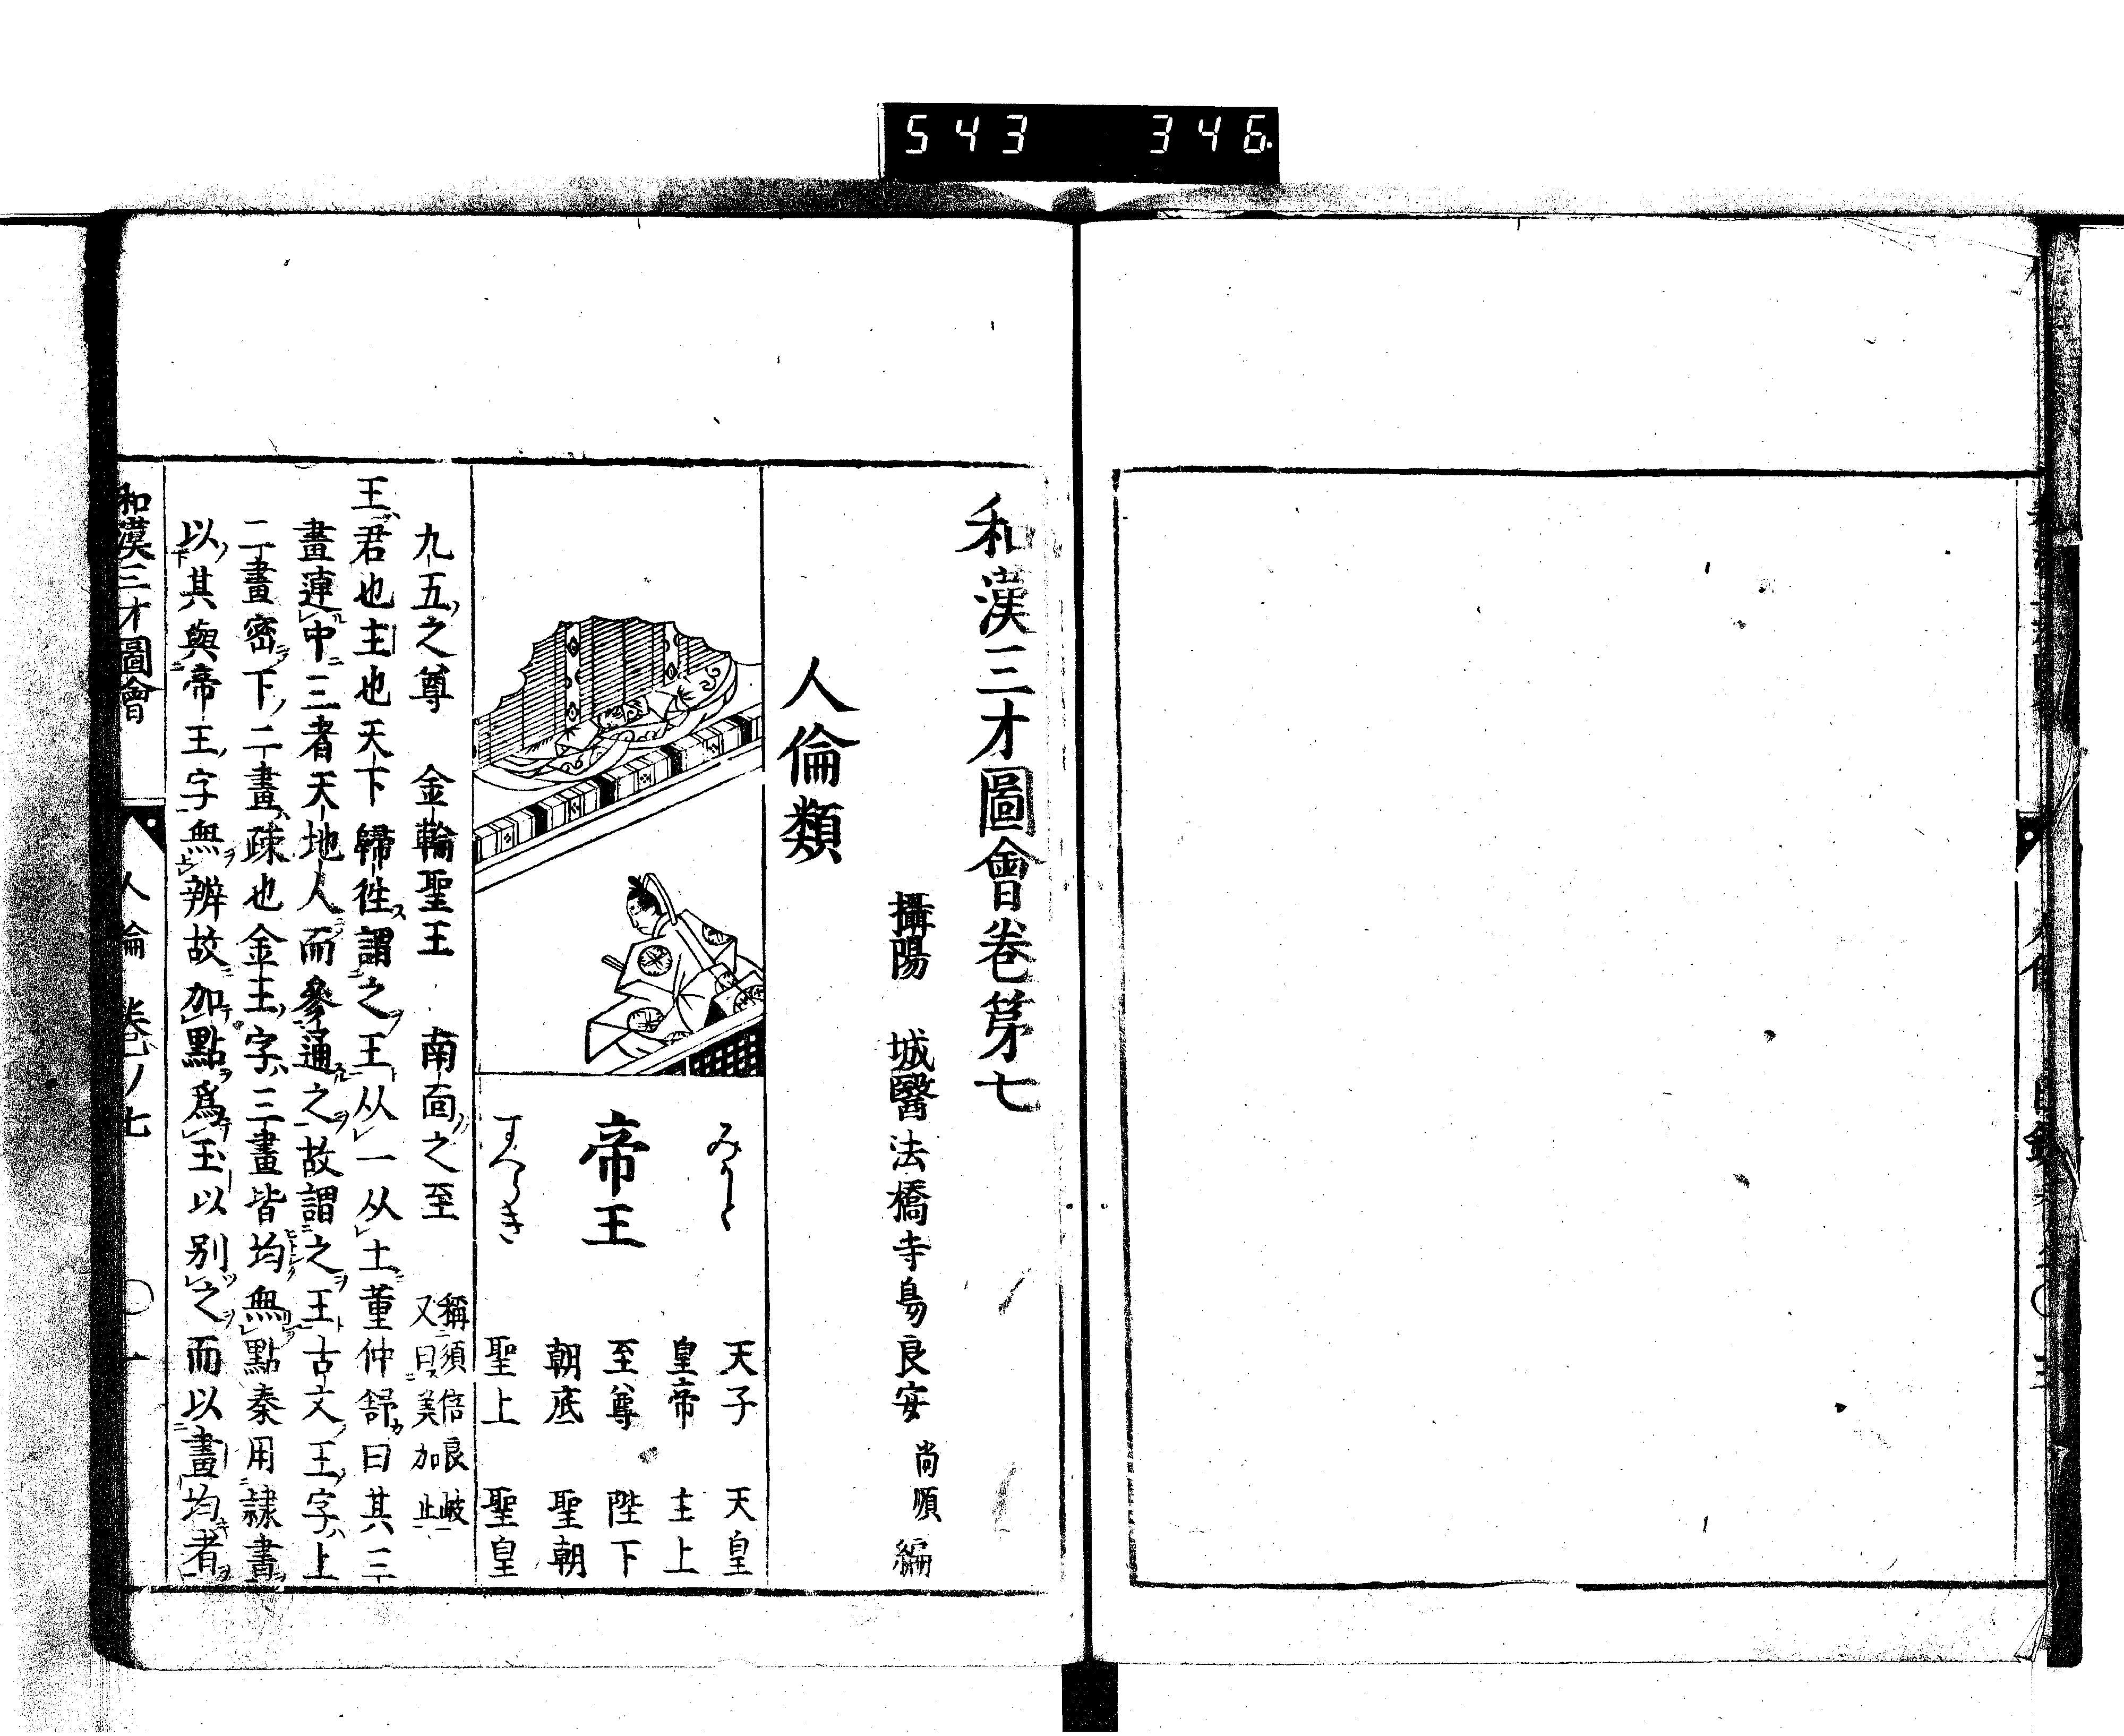 543 346
和漢三才圖會卷第七
攝陽 城醫法橋寺島良安 尚順 編
人倫類
帝王
みかと
すへらき
天子 天皇
皇帝 主上
至尊 陛下
朝底 聖朝
聖上 聖皇
九五之尊 金輪聖王 南面之至 稱須倍良岐
又曰美加止
王君也主也天下歸徃謂之王从一从土董仲舒曰其三
畫連中三者天地人而參通之故謂之王古文王字上
二畫密下二畫疎也金王字三畫皆均無點秦用隷書
以其與帝王字無辨故加點爲玉以别之而以畫均者
和漢三才圖會 人倫 卷ノ七 〇一